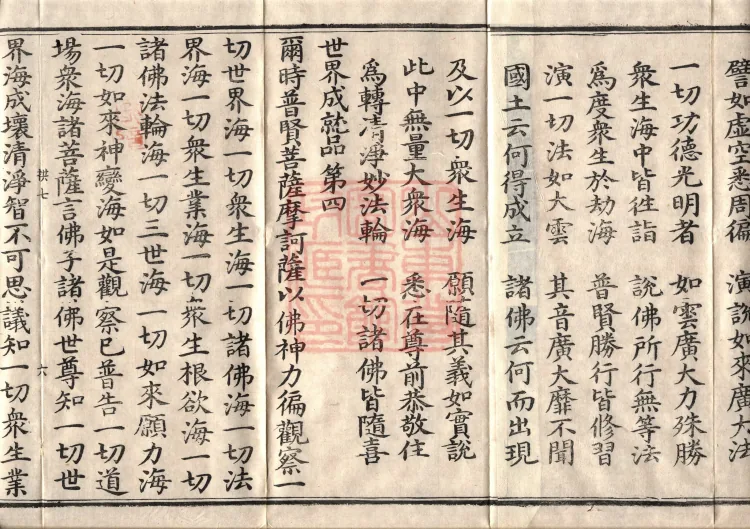 譬如虛空悉周徧　演說如來廣大法
一切功德光明者　如雲廣大力殊勝
衆生海中皆往詣　說佛所行無等法
爲度衆生於劫海　普賢勝行皆修習
演一切法如大雲　其音廣大靡不聞
國土云何得成立　諸佛云何而出現
及以一切衆生海　願隨其義如實說
此中無量大衆海　悉在尊前恭敬住
爲轉清淨妙法輪　一切諸佛皆隨喜
世界成就品第四
爾時普賢菩薩摩訶薩以佛神力徧觀察一
切世界海一切衆生海一切諸佛海一切法
界海一切衆生業海一切衆生根欲海一切
諸佛法輪海一切三世海一切如來願力海
一切如來神變海如是觀察已普告一切道
拱七　六
場衆海諸菩薩言佛子諸佛世尊知一切世
界海成壞清淨智不可思議知一切衆生業